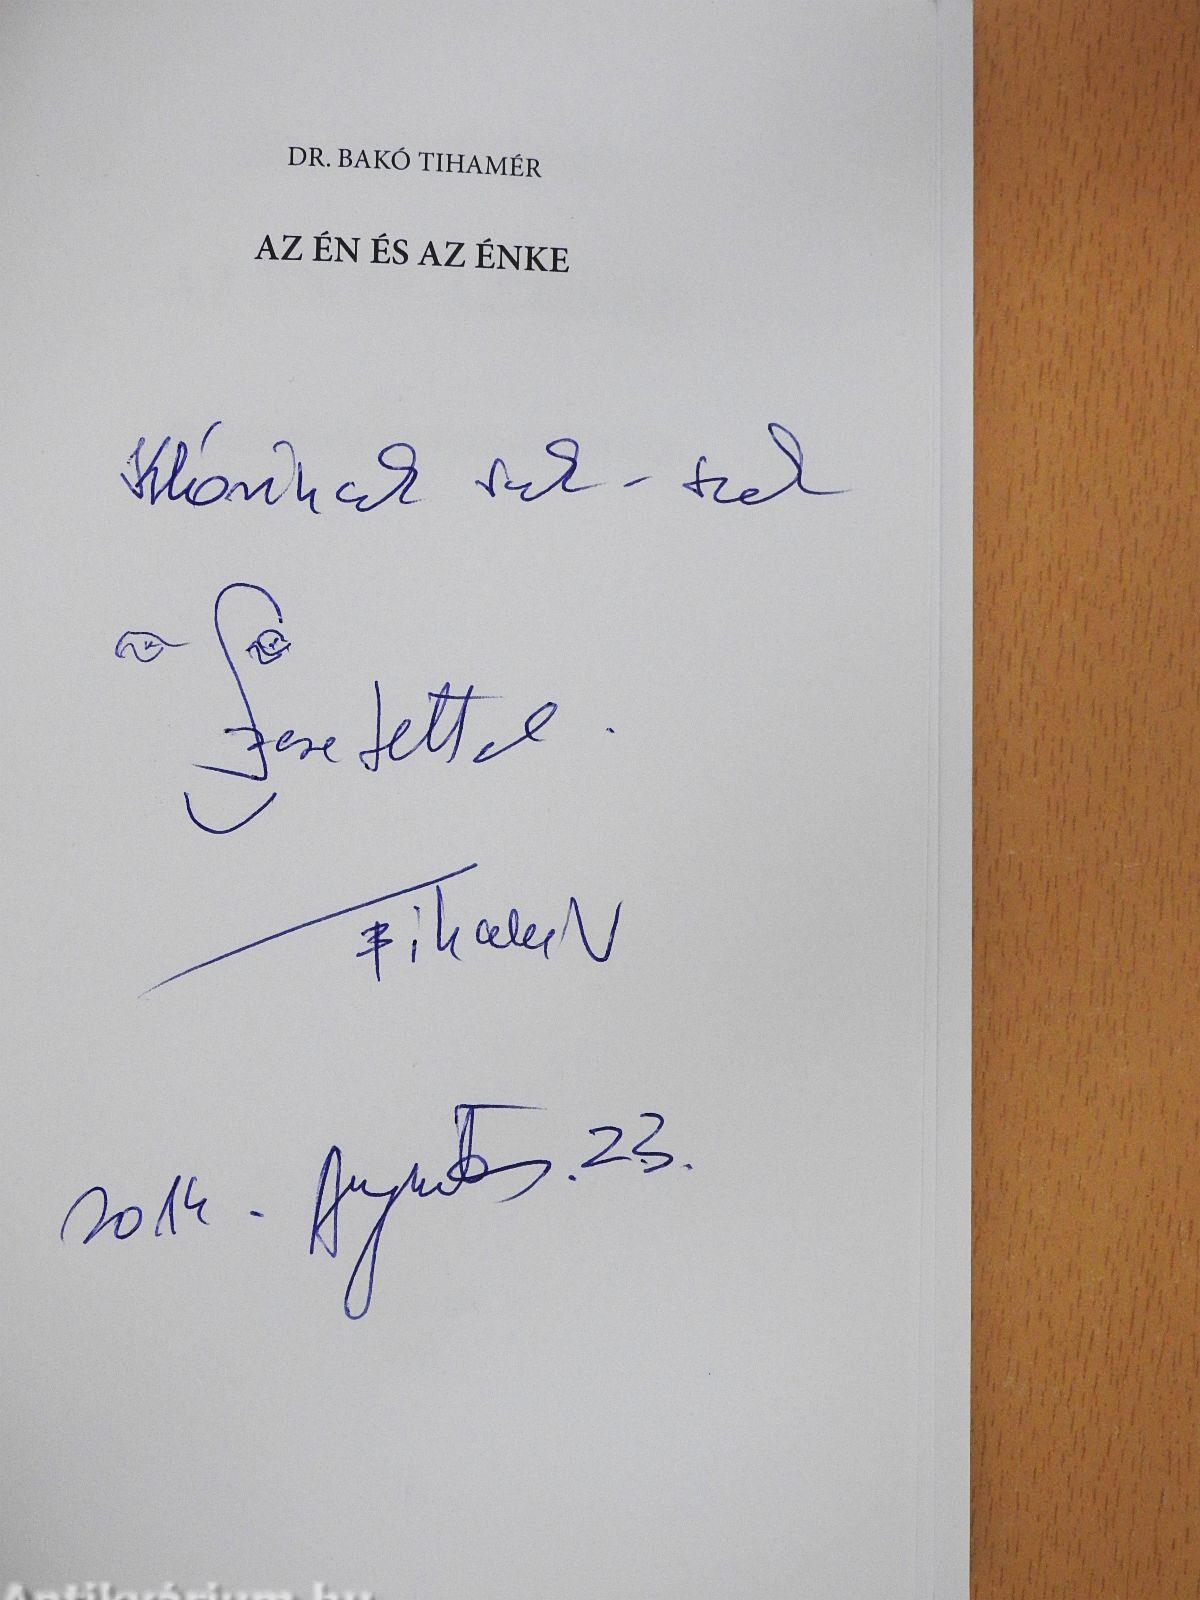 DR. BAKÓ TIHAMÉR
AZ ÉN ÉS AZ ÉNKE
Klórinak sok-sok
Szeretettel.
Tihamér
2014. Augusztus. 23.
Antikvárium.hu